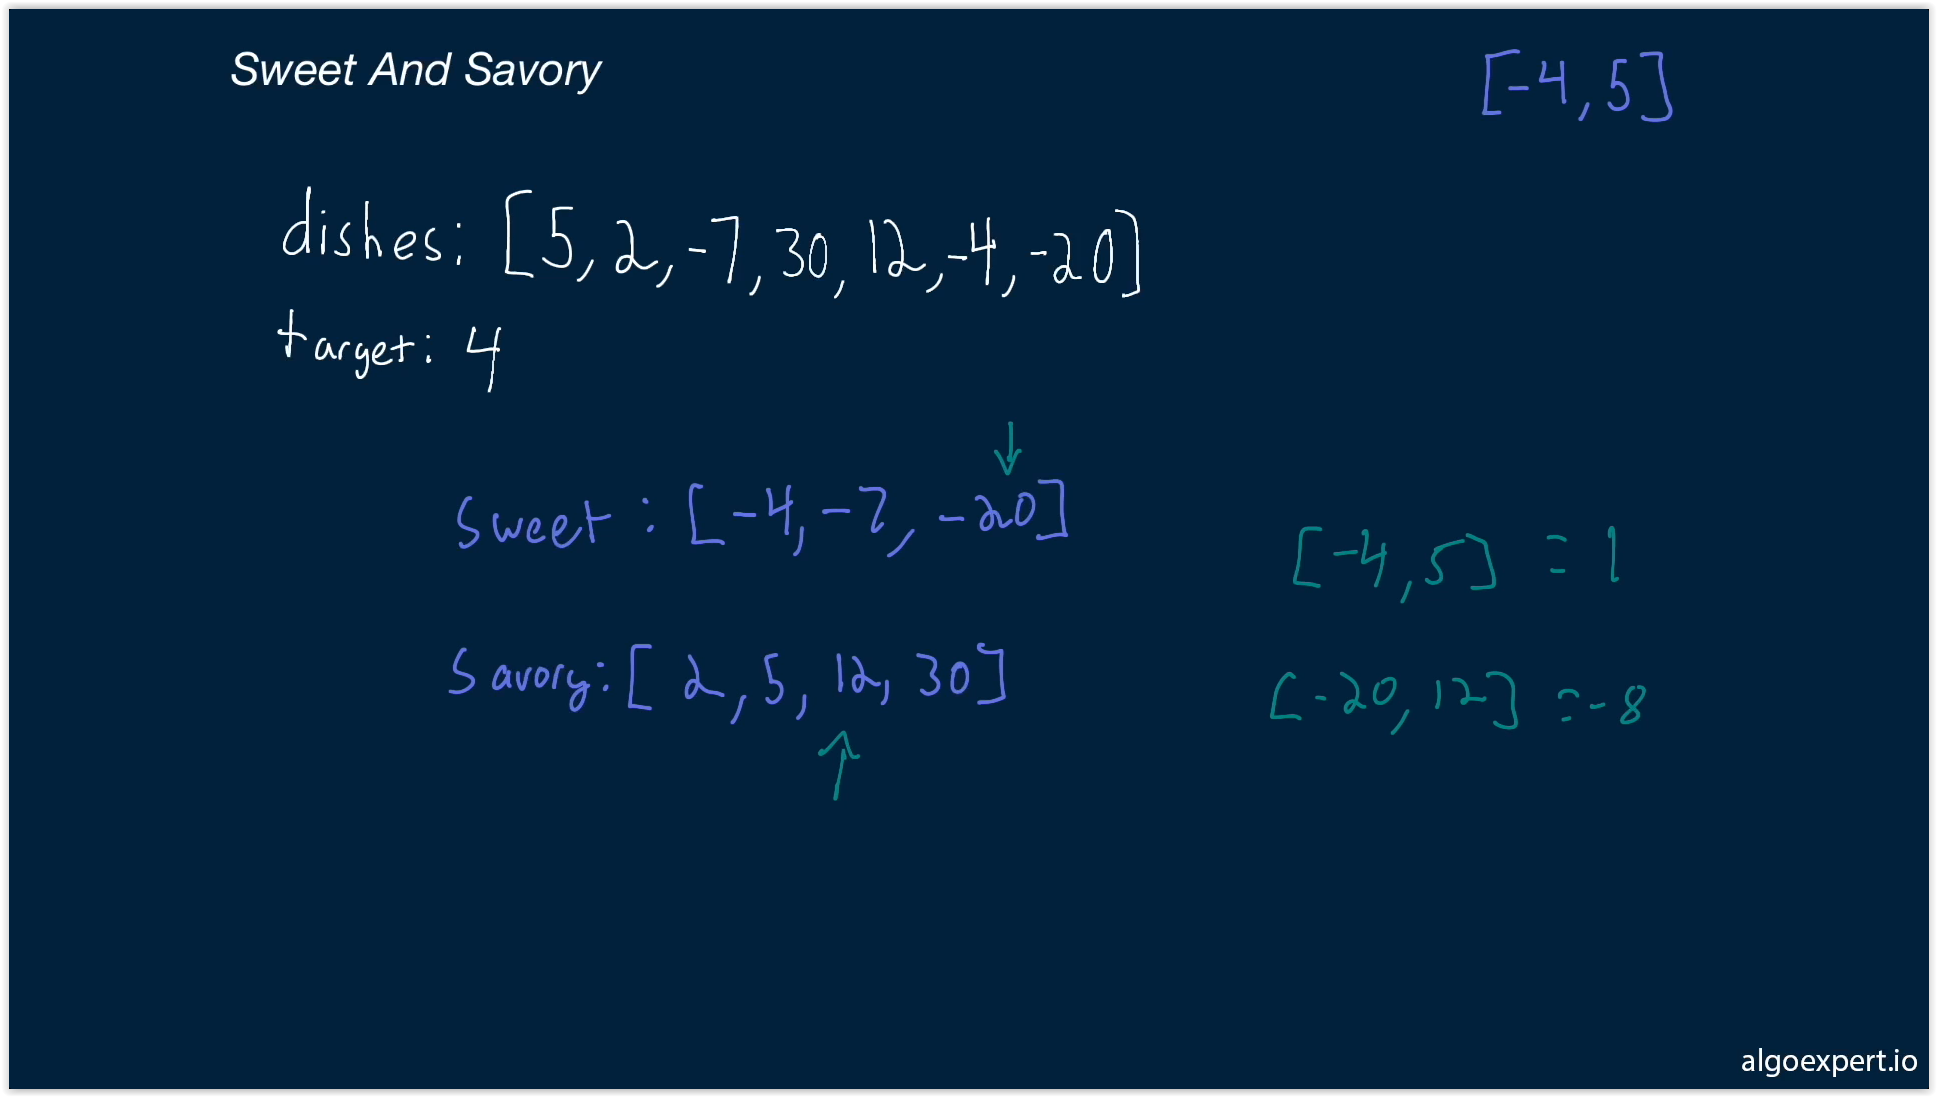 Sweet And Savory
[-4, 5]
dishes: [5, 2, -7, 30, 12, -4, -20]
target: 4
sweet: [-4, -7, -20]
[-4, 5] = 1
savory: [2, 5, 12, 30]
[-20, 12] = -8
algoexpert.io